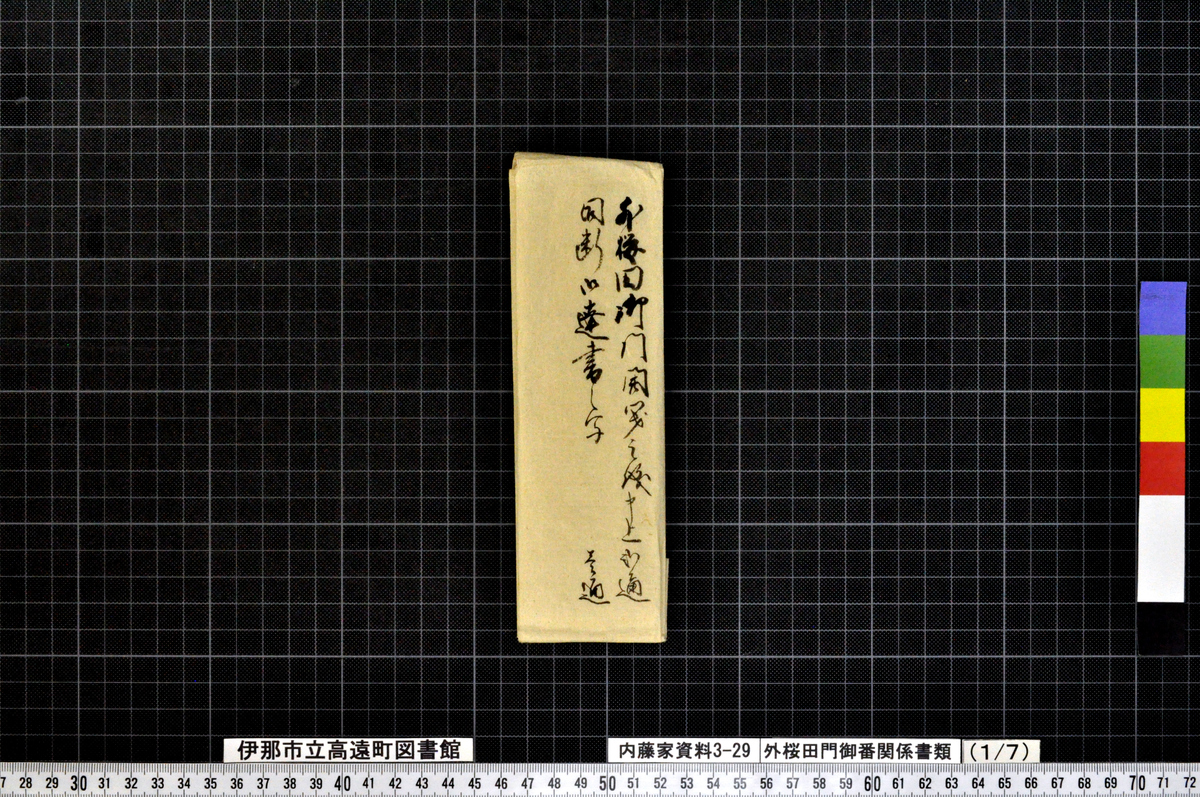 外桜田御門
同断御達書之写
壱通
伊那市立高遠町図書館
内藤家資料3-29 外桜田門御番関係書類 (1/7)
7 28 29 30 31 32 33 34 35 36 37 38 39 40 41 42 43 44 45 46 47 48 49 50 51 52 53 54 55 56 57 58 59 60 61 62 63 64 65 66 67 68 69 70 71 72